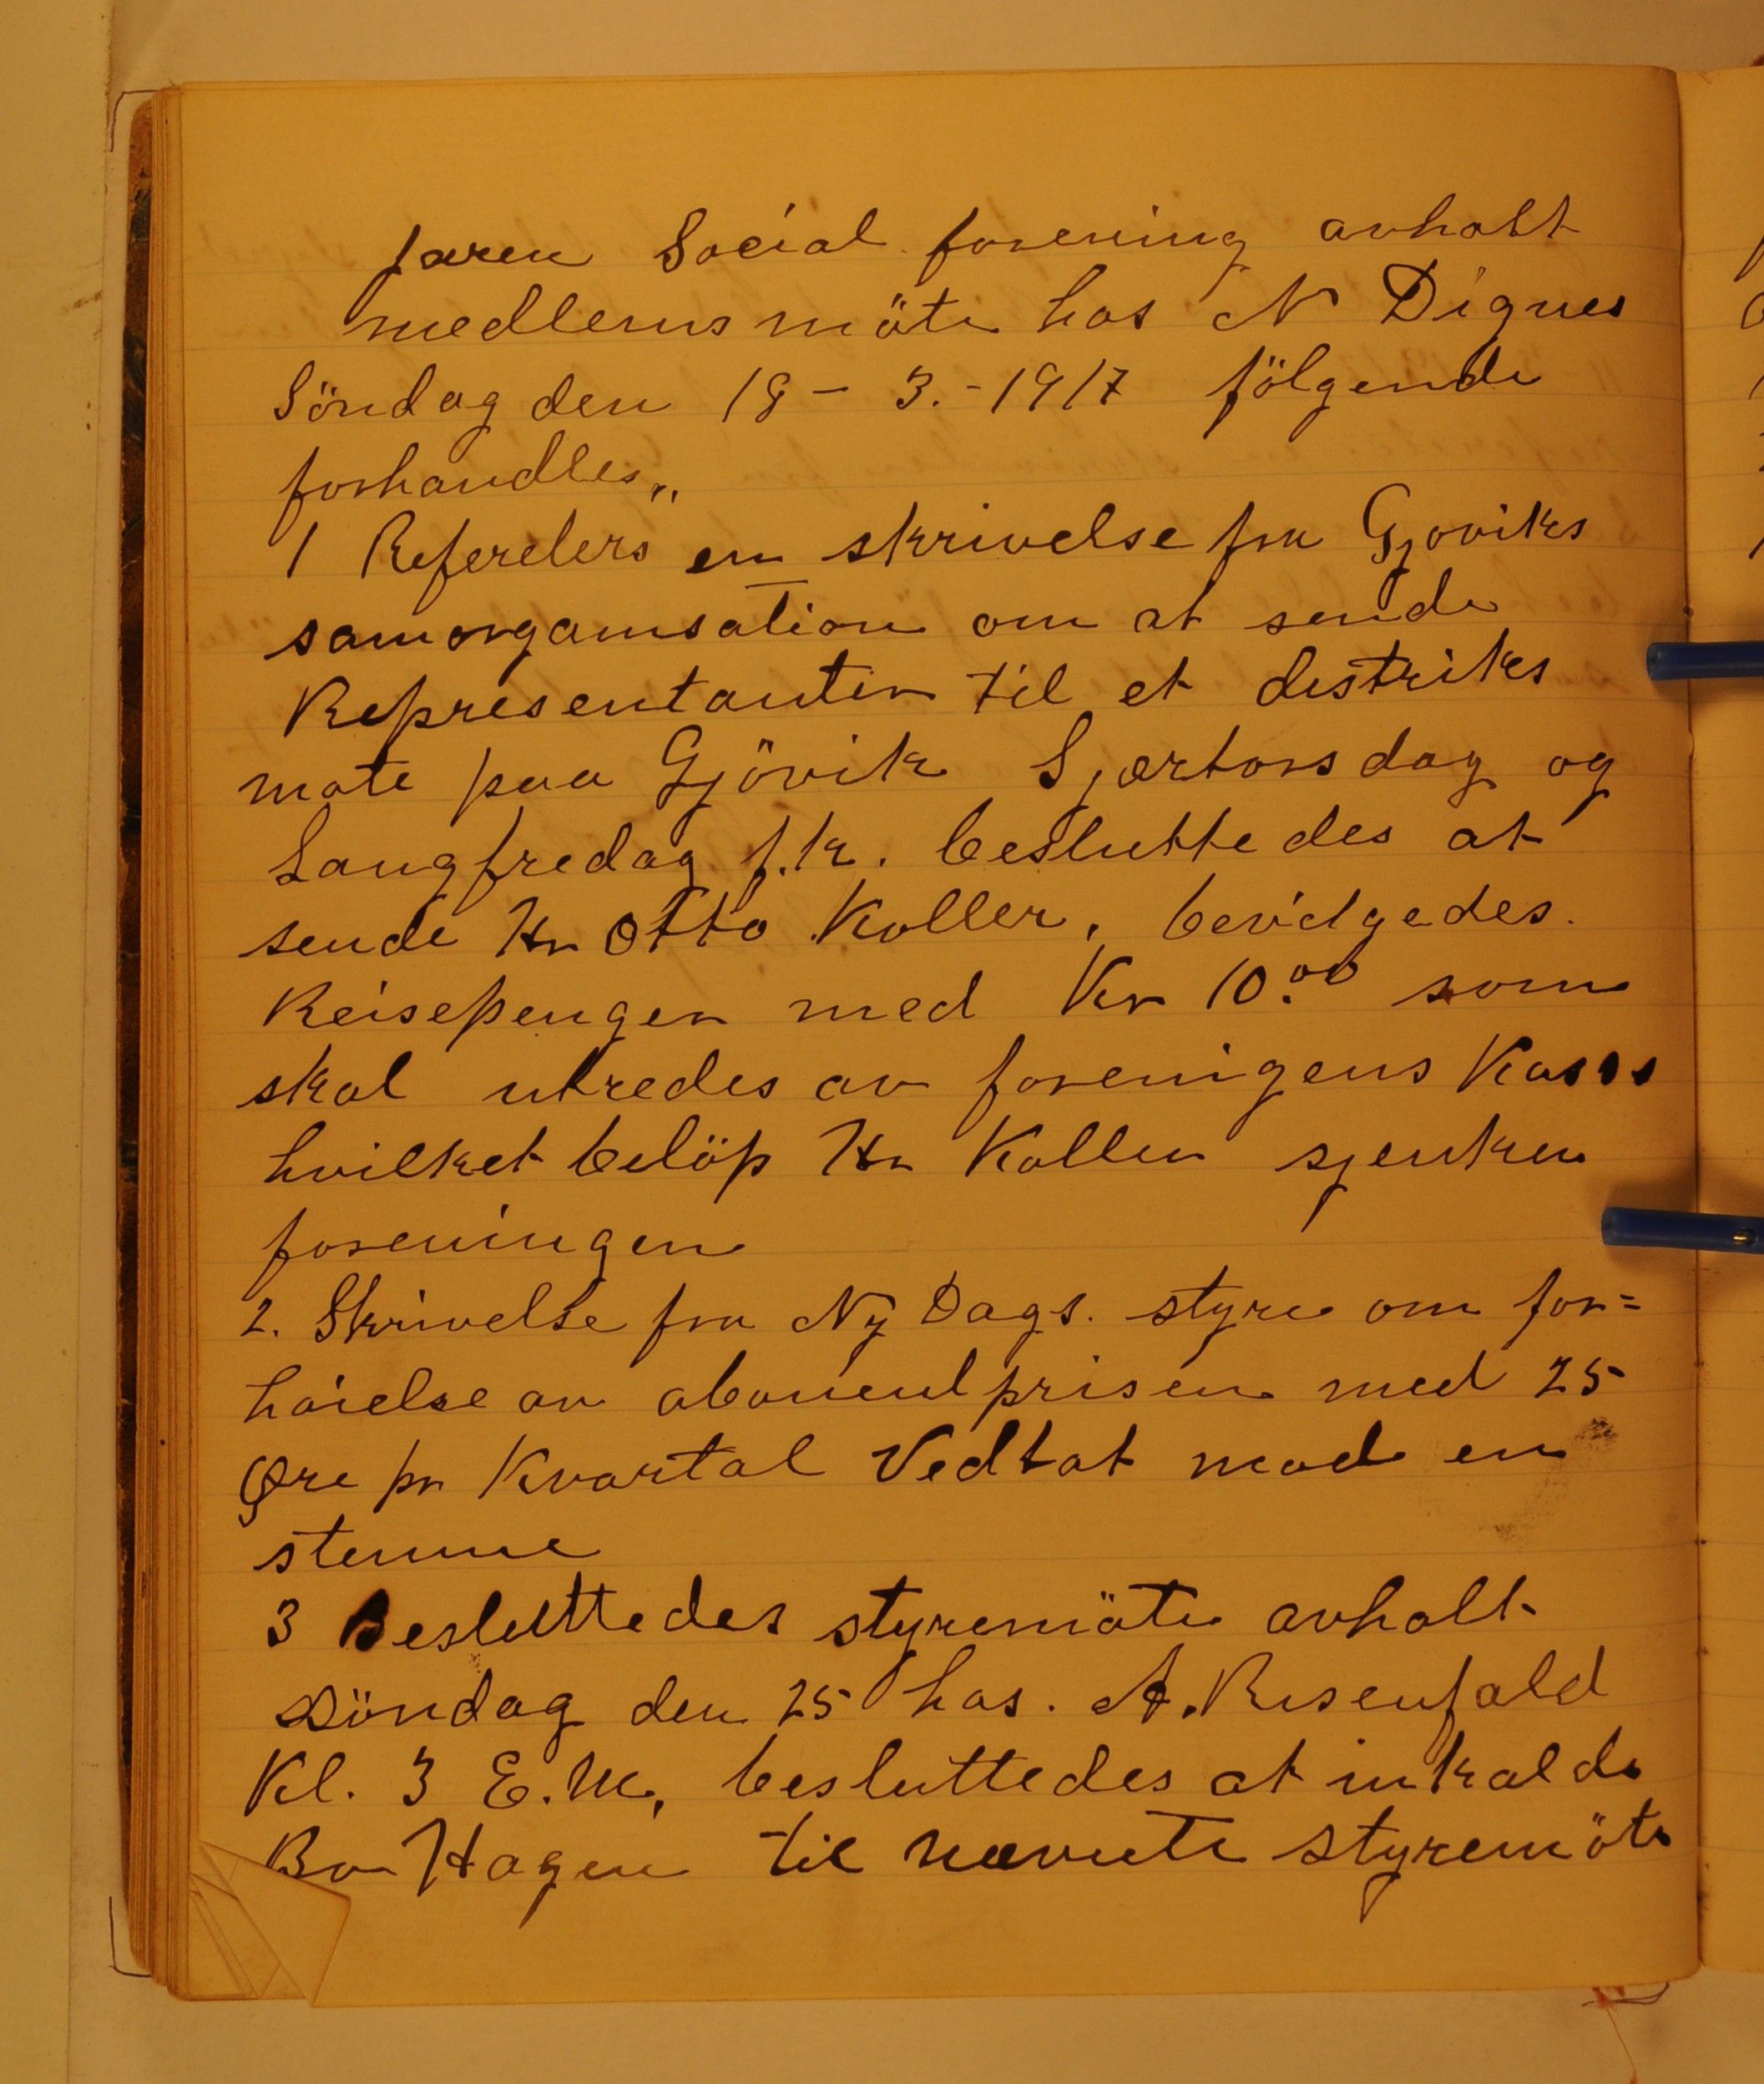 Jaren Social forening avholt
medlemsmöte hos N Dignes
Söndag den 18 - 3. - 1917 fölgende
forhandles„
1 Referelers en skrivelse fra Gjoviks
samorganisation om at sende
Representanter til et distriks
mote paa Gjövik Sjærtorsdag og
Langfredag f.k. besluttedes at
sende Hr Otto Koller, bevilgedes.
Reisepenger med Kr 10.00 som
skal utredes av forenigens Kasse
hvilket belöp Hr Koller sjenker
foreningen
2. Skrivelse fra Ny Dags. styre om for=
hoielse av abonentprisen med 25
Øre pr Kvartal Vedtat mod en
stemme
3 Besluttedes styremöte avholt
Söndag den 25 hos. A. Risenfald
Kl. 3 E.M, besluttedes at inkalde
Br Hagen til nævnte styremöte